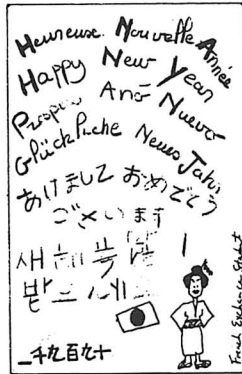 Heureuse Nouvelle Année
Happy New Year
Prospero Ano Nuevo
Glückliche Neues Jahr
あけまして おめでとう
ございます
새해
一千九百九十
French Exchange Student